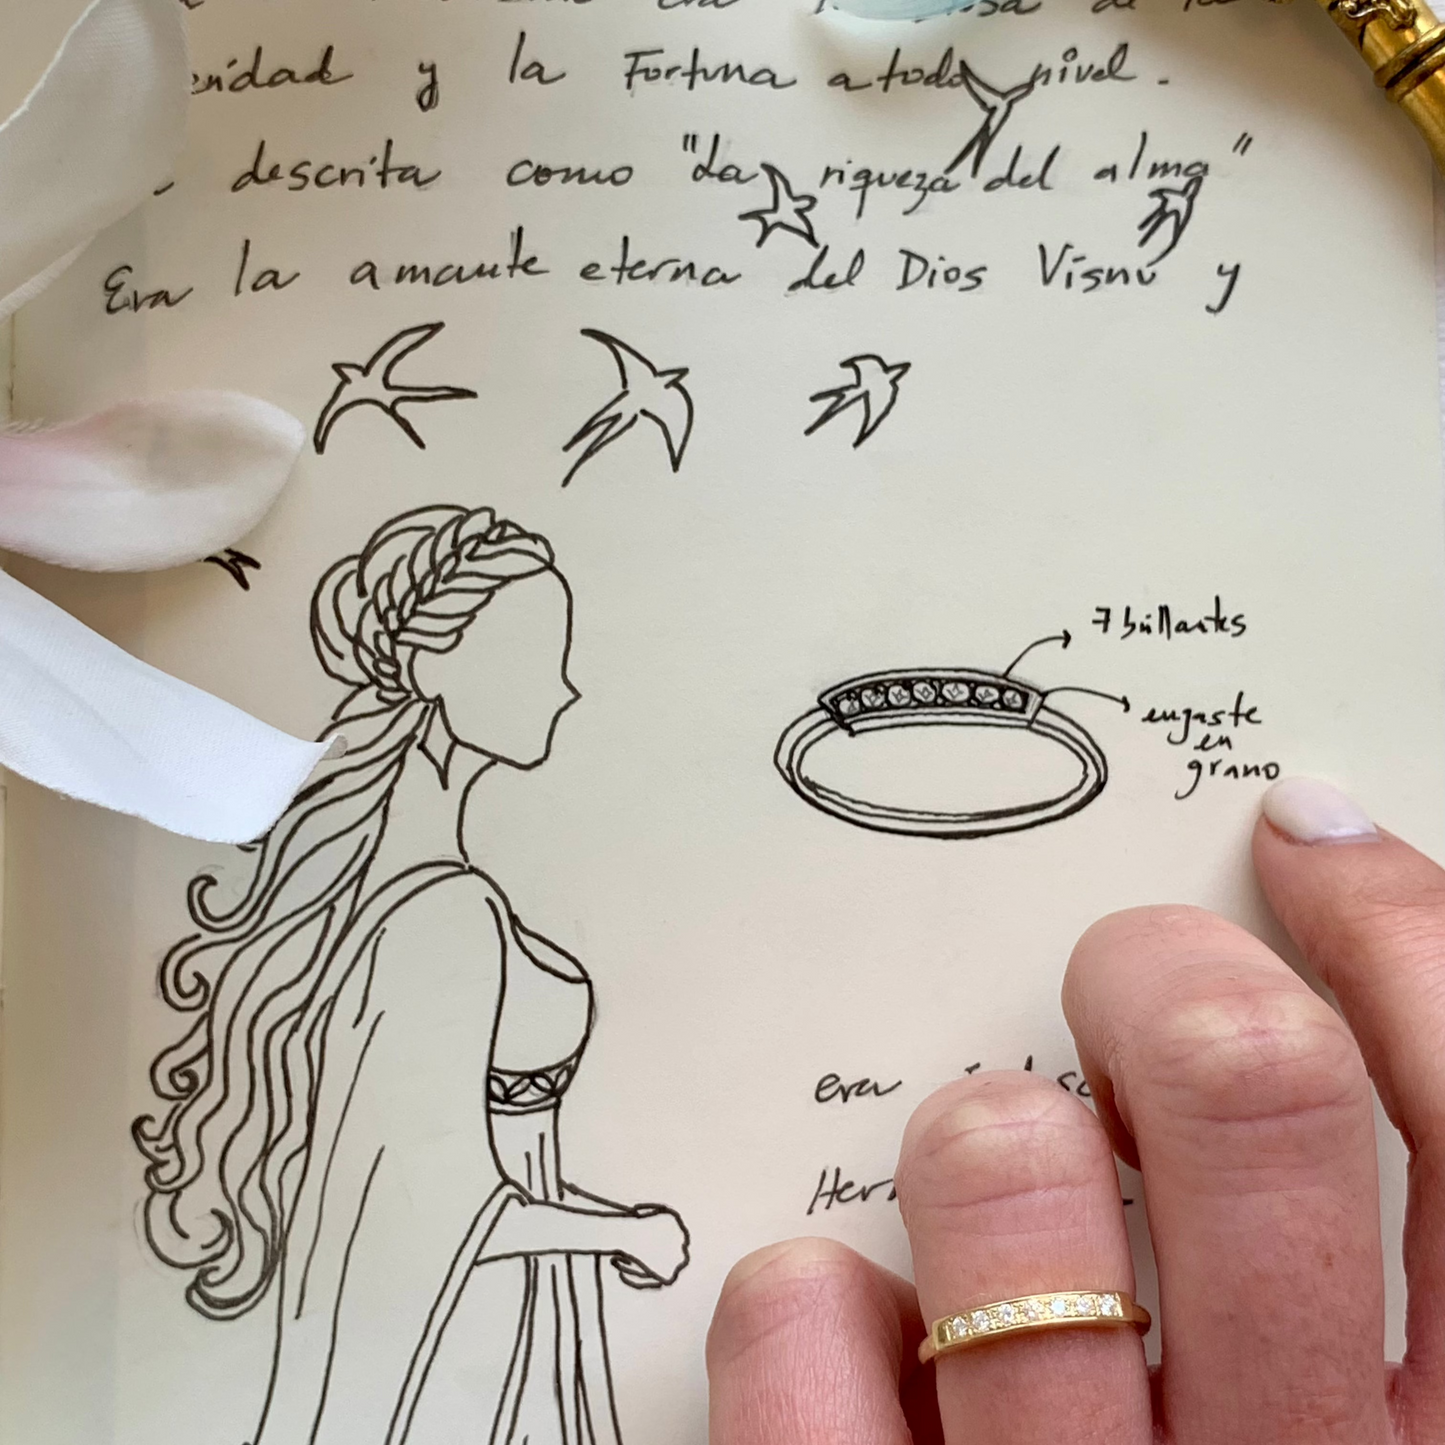 era la
y la Fortuna a todo nivel.
descrita como "La riqueza del alma"
Era la amante eterna del Dios Visnú y
7 brillantes
engaste
en
grano
era